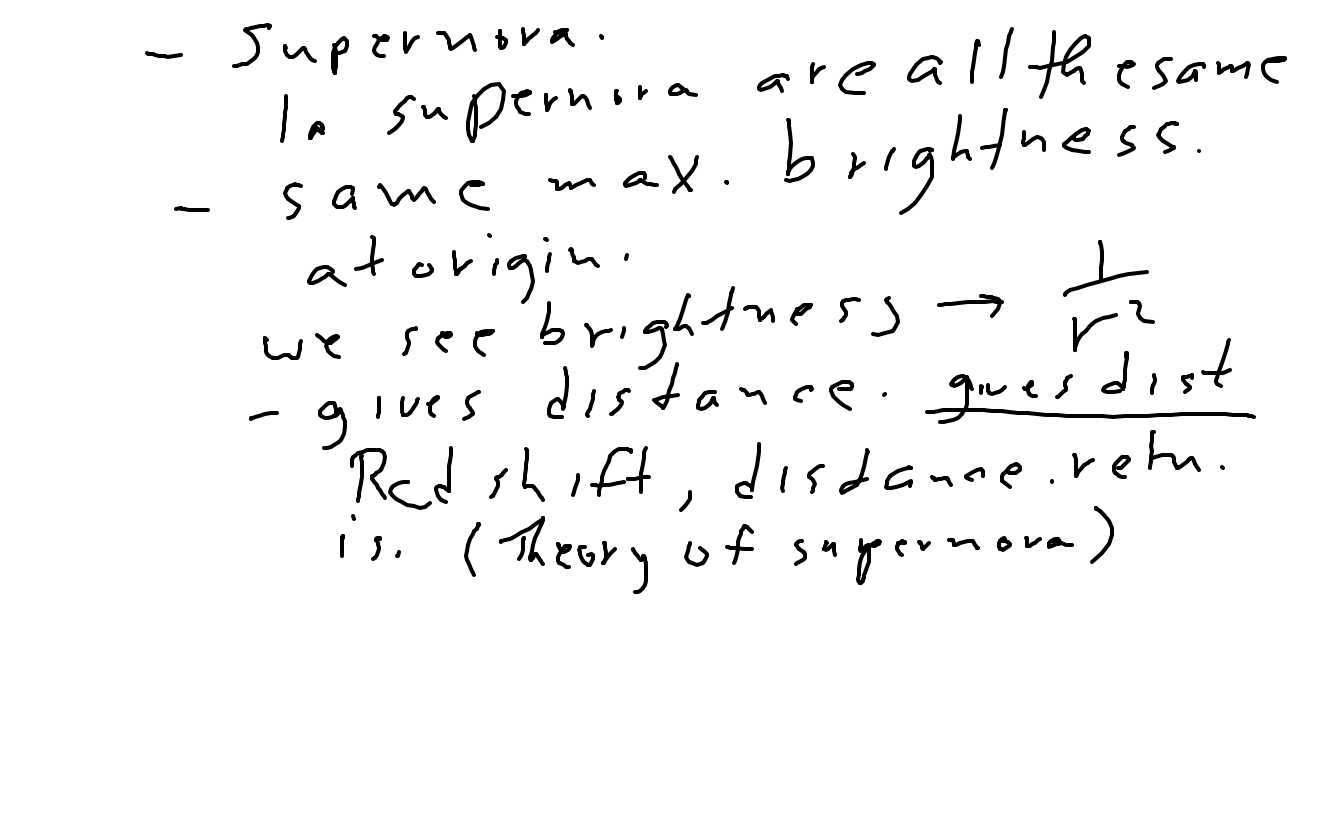 - Supernova.
1a supernova are all the same
- same max. brightness.
at origin.
we see brightness → 1/r²
- gives distance. gives dist
Red shift, distance. retn.
is. (Theory of supernova)